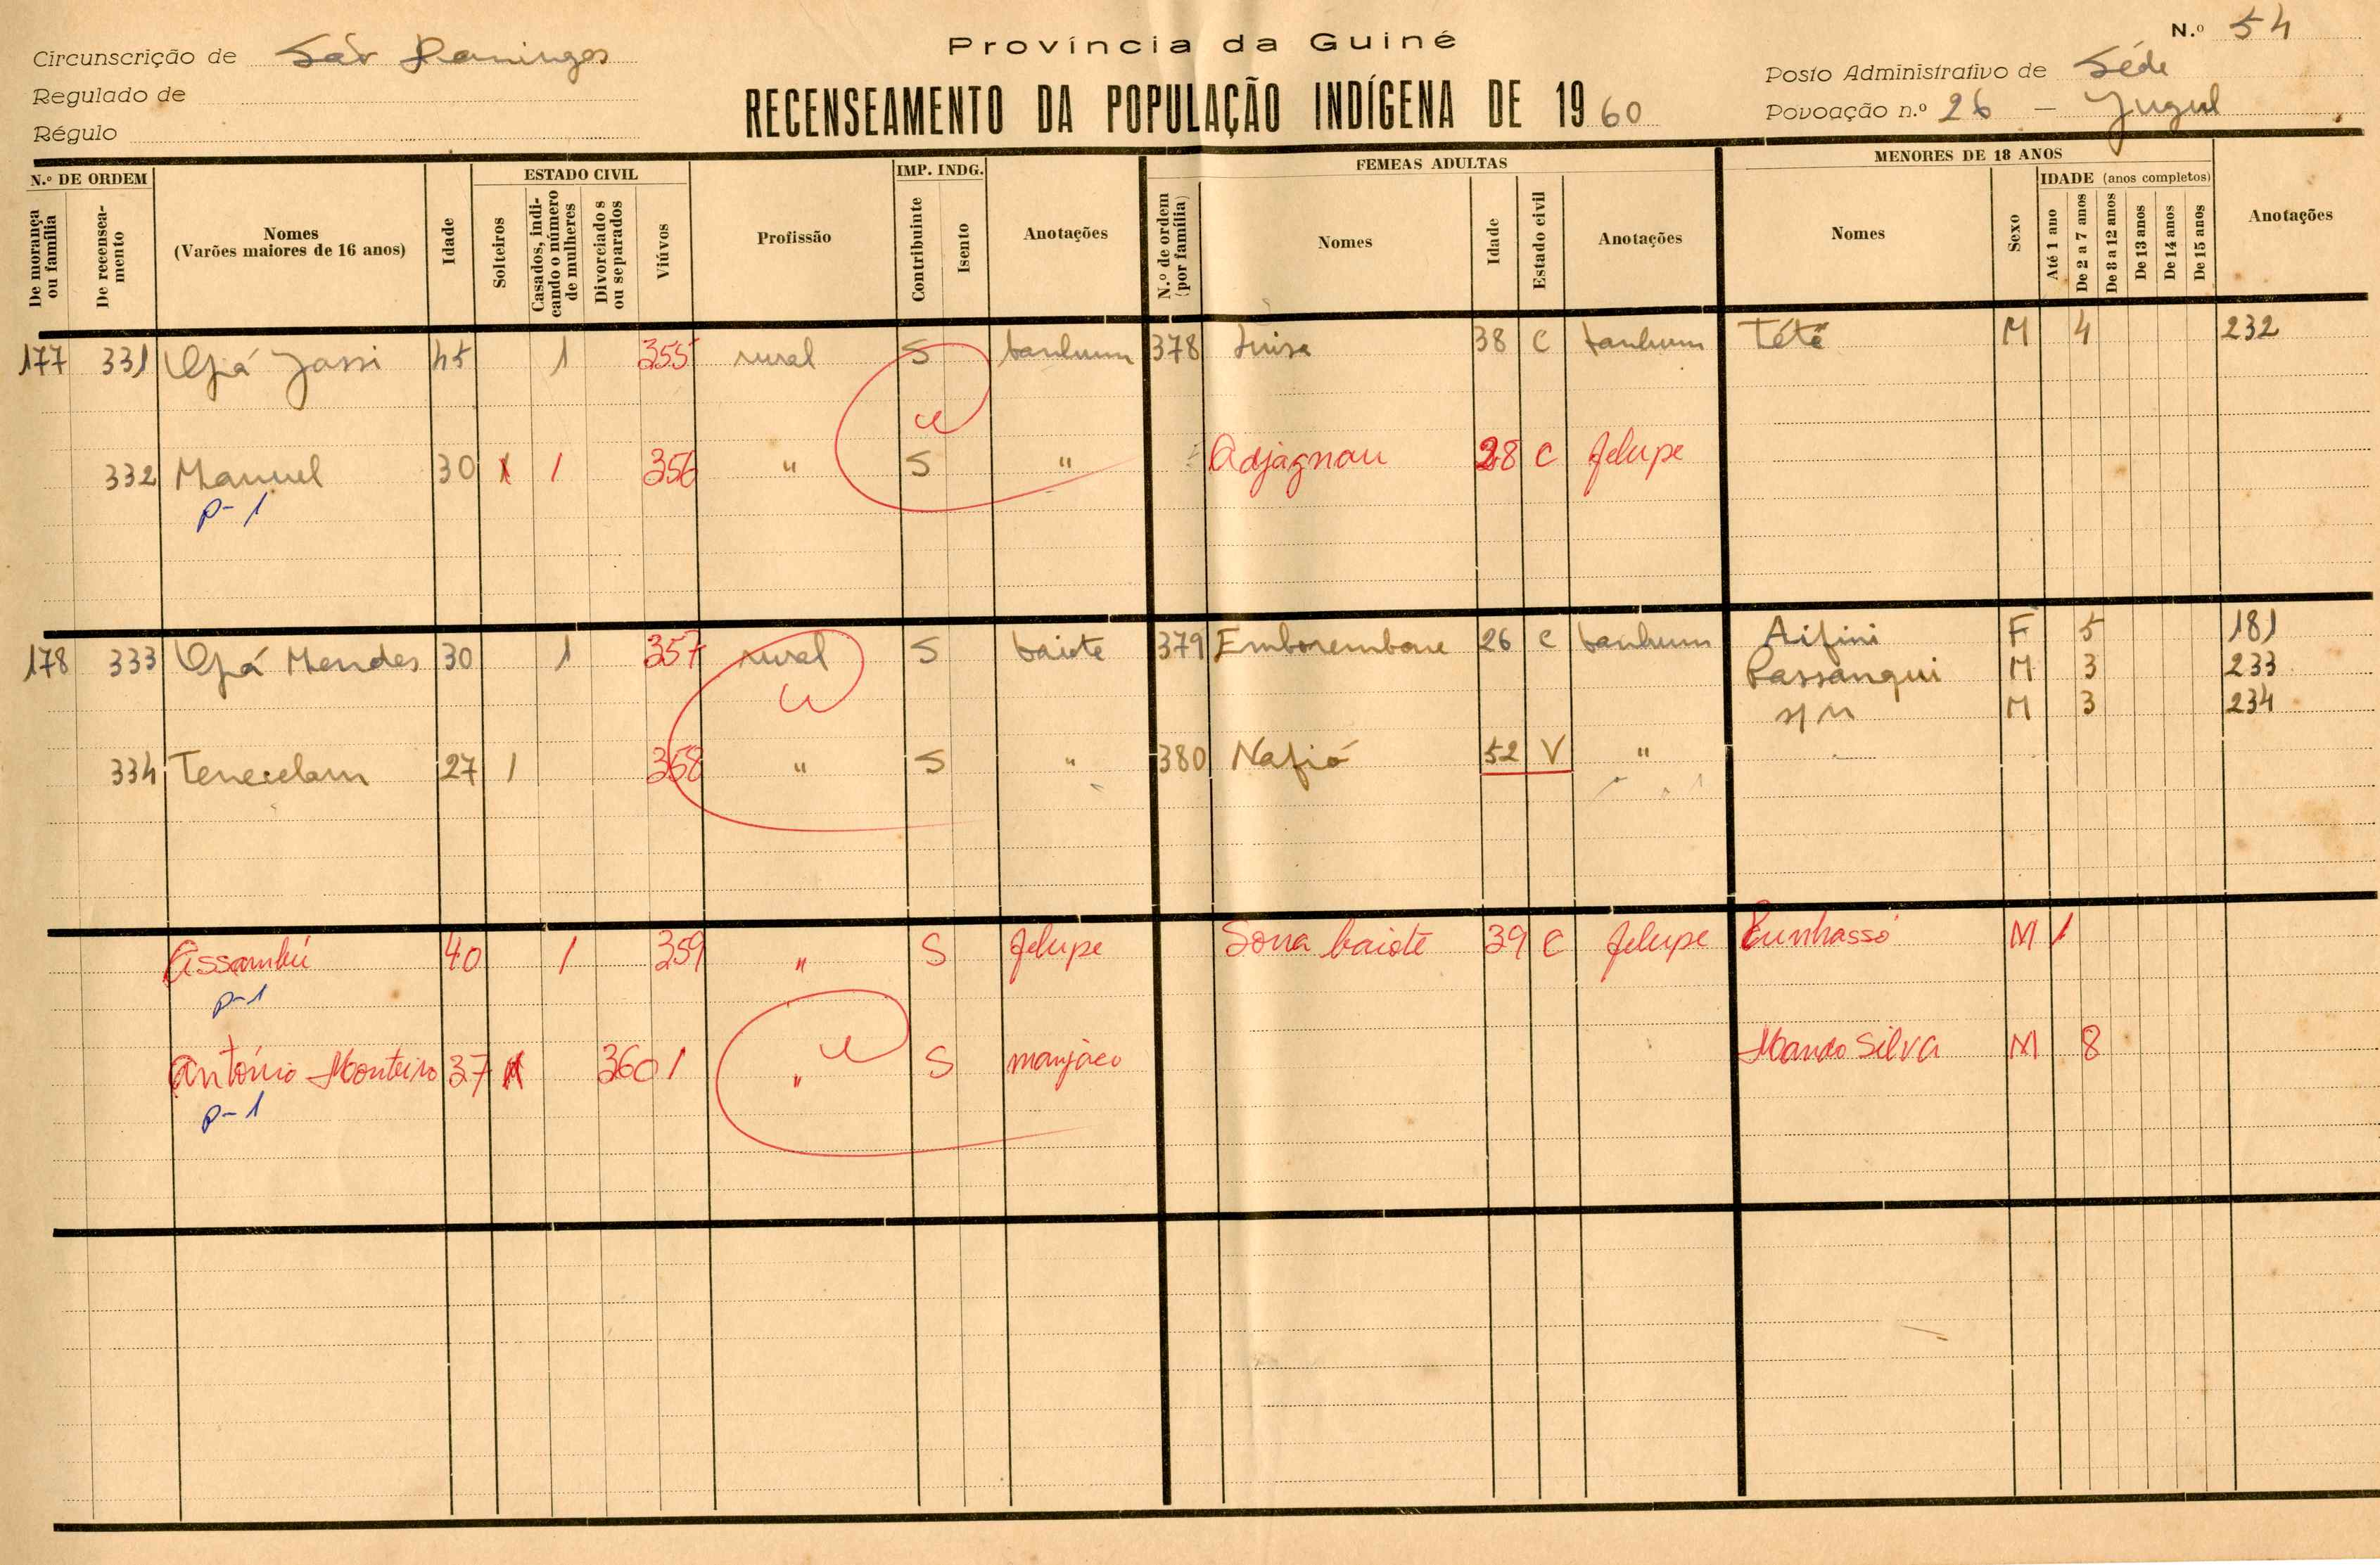 Província da Guiné
N.º 54
Circunscrição de São Domingos
Regulado de
Régulo
RECENSEAMENTO DA POPULAÇÃO INDÍGENA DE 1960
Posto Administrativo de Séde
Povoação n.º 26 — Jugul
N.º DE ORDEM
De morança ou família
De recenseamento
Nomes
(Varões maiores de 16 anos)
Idade
ESTADO CIVIL
Solteiros
Casados, indicando o número de mulheres
Divorciados ou separados
Viúvos
Profissão
IMP. INDG.
Contribuinte
Isento
Anotações
FEMEAS ADULTAS
N.º de ordem (por família)
Nomes
Idade
Estado civil
Anotações
MENORES DE 18 ANOS
Nomes
Sexo
IDADE (anos completos)
Até 1 ano
De 2 a 7 anos
De 8 a 12 anos
De 13 anos
De 14 anos
De 15 anos
Anotações
177 331 Jassi 45 1 355 rural S banhum 378 Luisa 38 C banhum Tété M 4 232
332 Manuel 30 1 356 " S " Adjagnau 28 C felupe
p-1
178 333 Mendes 30 1 357 rural S baiote 379 26 C banhum Aifini F 5 181
Passanqui M 3 233
s/n M 3 234
334 27 1 358 " S " 380 Nafió 52 V "
Assambú 40 1 359 " S felupe Sona baiote 39 C felupe M 1
p-1
António Monteiro 37 360 1 " S manjaco Silva M 8
p-1